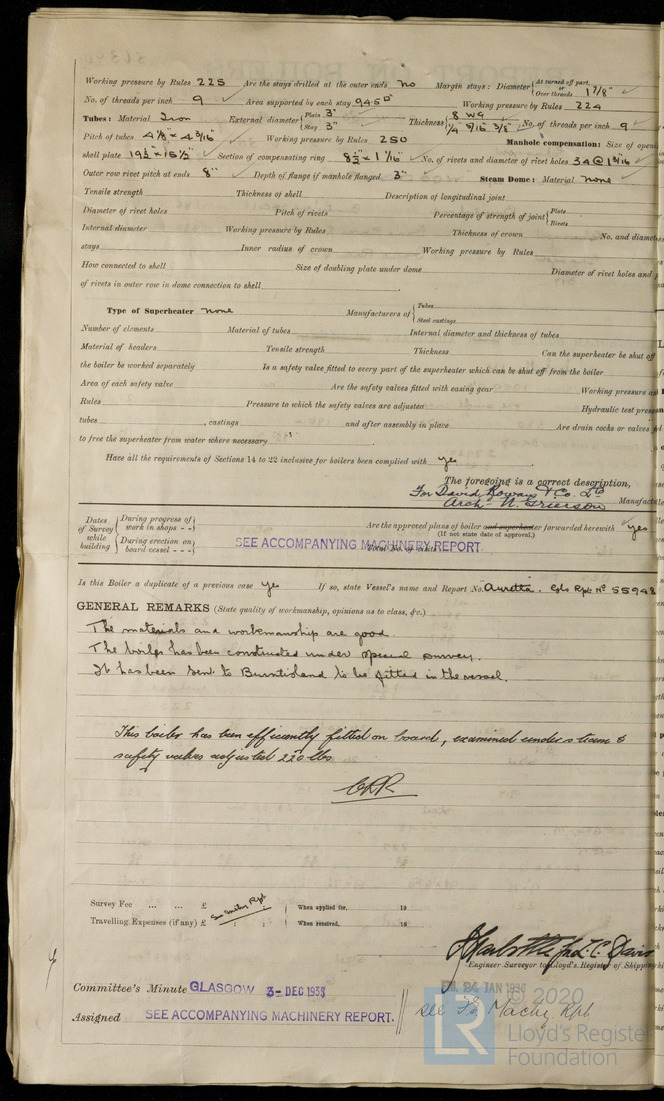 Working pressure by Rules 225 Are the stays drilled at the outer ends no Margin stays: Diameter { At turned off part, or Over threads 1 7/8"
No. of threads per inch 9 Area supported by each stay 94.5 □" Working pressure by Rules 224
Tubes: Material Iron External diameter { Plain 3" Stay 3" Thickness { 8 WG 1/4 5/16 3/8" No. of threads per inch 9
Pitch of tubes 4 1/8" x 4 3/16" Working pressure by Rules 250 Manhole compensation: Size of open
shell plate 19 1/2" x 15 1/2" Section of compensating ring 8 1/2" x 1 1/16" No. of rivets and diameter of rivet holes 34 @ 1 5/16"
Outer row rivet pitch at ends 8" Depth of flange if manhole flanged 3" Steam Dome: Material none
Tensile strength Thickness of shell Description of longitudinal joint
Diameter of rivet holes Pitch of rivets Percentage of strength of joint { Plate Rivets
Internal diameter Working pressure by Rules Thickness of crown No. and diamet
stays Inner radius of crown Working pressure by Rules
How connected to shell Size of doubling plate under dome Diameter of rivet holes and
of rivets in outer row in dome connection to shell
Type of Superheater none Manufacturers of { Tubes Steel castings
Number of elements Material of tubes Internal diameter and thickness of tubes
Material of headers Tensile strength Thickness Can the superheater be shut off
the boiler be worked separately Is a safety valve fitted to every part of the superheater which can be shut off from the boiler
Area of each safety valve Are the safety valves fitted with easing gear Working pressure as
Rules Pressure to which the safety valves are adjusted Hydraulic test pres
tubes , castings and after assembly in place Are drain cocks or valves
to free the superheater from water where necessary
Have all the requirements of Sections 14 to 22 inclusive for boilers been complied with yes
The foregoing is a correct description,
For David Rowan & Co. Ld
Arch. N. Grierson Manufact
Dates of Survey while building { During progress of work in shops - - During erection on board vessel - - -
Are the approved plans of boiler and superheater forwarded herewith yes
(If not state date of approval.)
SEE ACCOMPANYING MACHINERY REPORT.
Total No. of visits
Is this Boiler a duplicate of a previous case yes If so, state Vessel's name and Report No. Auretta. Gls Rpt No 55948
GENERAL REMARKS (State quality of workmanship, opinions as to class, &c.)
The materials and workmanship are good.
The boiler has been constructed under special survey.
It has been sent to Burntisland to be fitted in the vessel.
This boiler has been efficiently fitted on board, examined under steam &
safety valves adjusted 220 lbs
Survey Fee ... ... £ See Mchy Rpt When applied for, 19
Travelling Expenses (if any) £ When received, 19
Engineer Surveyor to Lloyd's Register of Shipping
Committee's Minute GLASGOW 3 - DEC 1935
24 JAN 1936
Assigned SEE ACCOMPANYING MACHINERY REPORT.
See F.E. Machy Rpt.
© 2020
LR
Lloyd's Register
Foundation